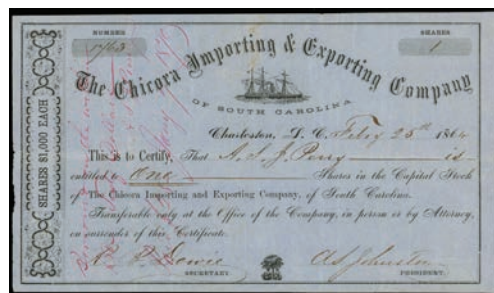 NUMBER
SHARES
1763
1
The Chicora Importing & Exporting Company
OF SOUTH CAROLINA
Charleston, S. C. Feby 25th 1864
This is to Certify, That A. S. J. Perry is
entitled to One Shares in the Capital Stock
of The Chicora Importing and Exporting Company, of South Carolina.
Transferable only at the Office of the Company, in person or by Attorney,
on surrender of this Certificate.
SECRETARY.
A S Johnston
PRESIDENT.
SHARES $1,000 EACH